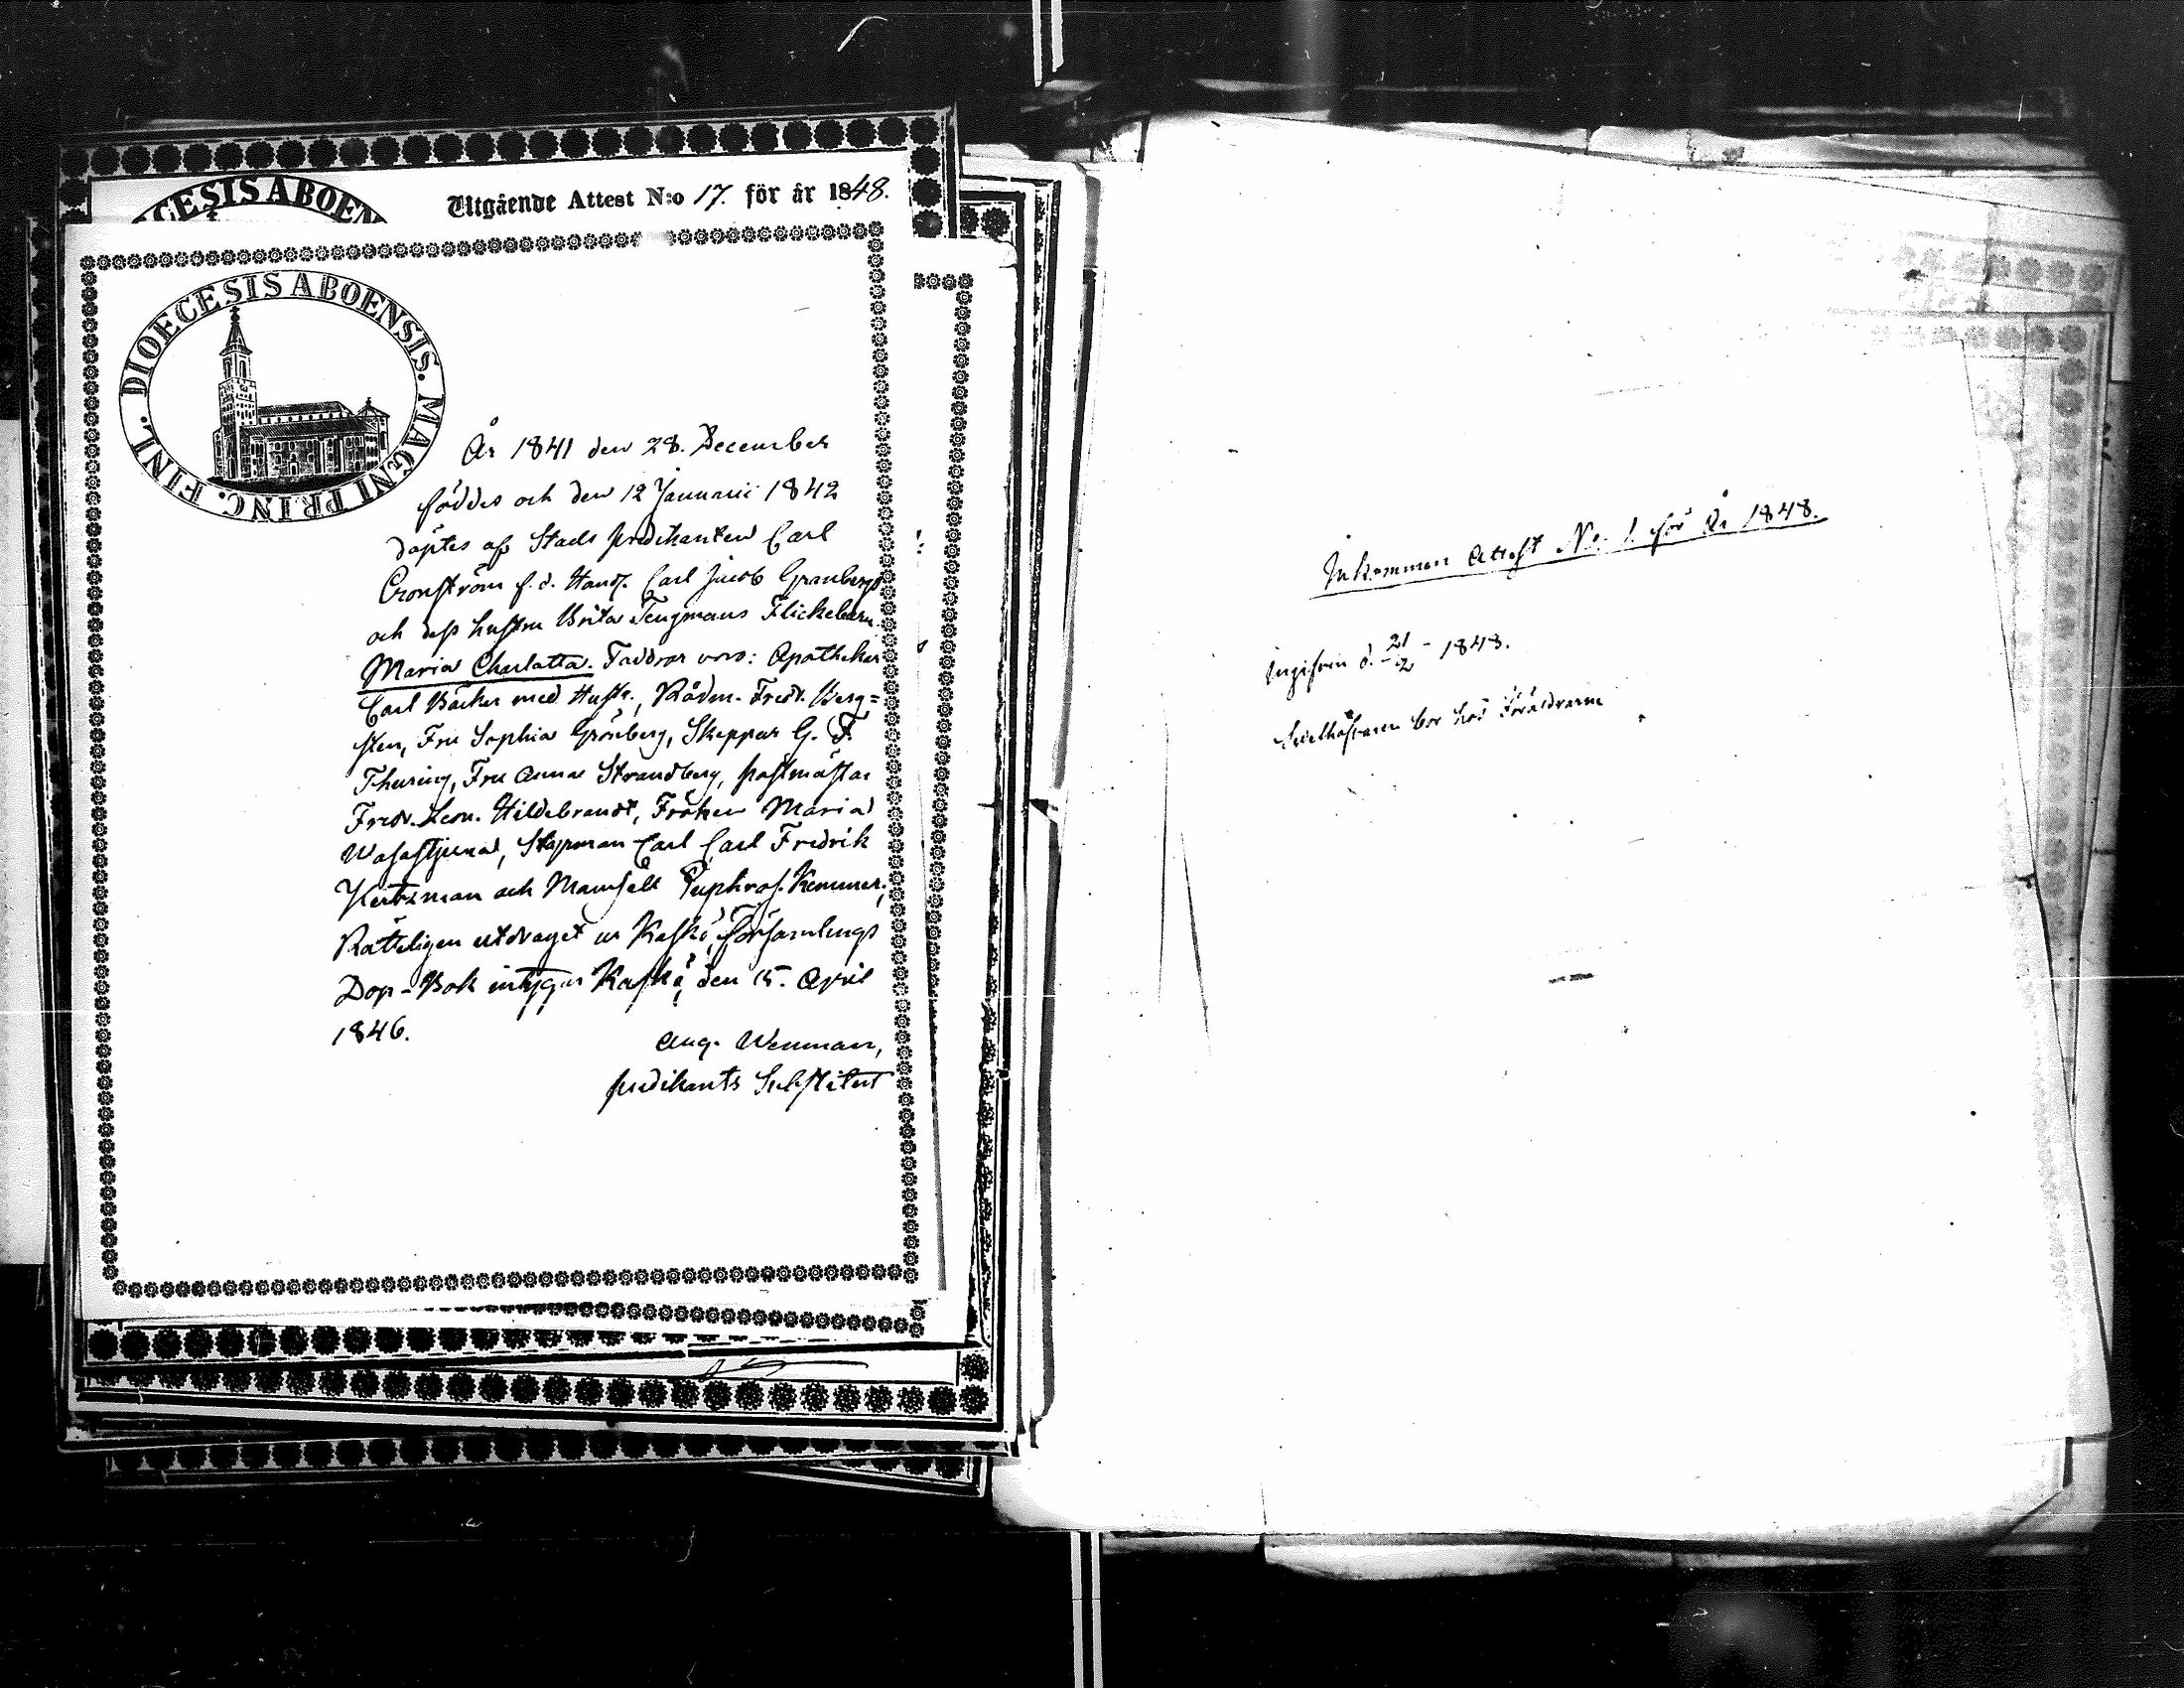 CESIS ABOEN
Utgående Attest N:o 17. för år 1848.
DIOECESIS ABOENSIS. MAGNI PRINC. FINL.
År 1841 den 28. December
föddes och den 12 Januarii 1842
döptes af Stads predikanten Carl
Cronström f. d. Handl. Carl Jacob Granbergs
och dess hustru Brita Tengmans Flickebarn
Maria Charlotta. Faddrar voro: Apothekar
Carl Bäcker med Hustr., Rådm. Fredr. Berg=
sten, Fru Sophia Grönberg, Skeppar G. F.
Thuring, Fru Anna Strandberg, postmästar
Fredr. Leon. Hildebrandt, Fröken Maria
Wasastjerna, Styrman Carl Carl Fredrik
Hertzman och Mamsell
Rätteligen utdraget ur Kaskö Församlings
Dop-Bok intygar Kaskö, den 15. April
1846.
Aug. Wenman,
predikants Substitut
Inkommen Attest No. 1 för År 1848.
Ingifven d. 21/2 - 1848.
bor hos Föräldrarne